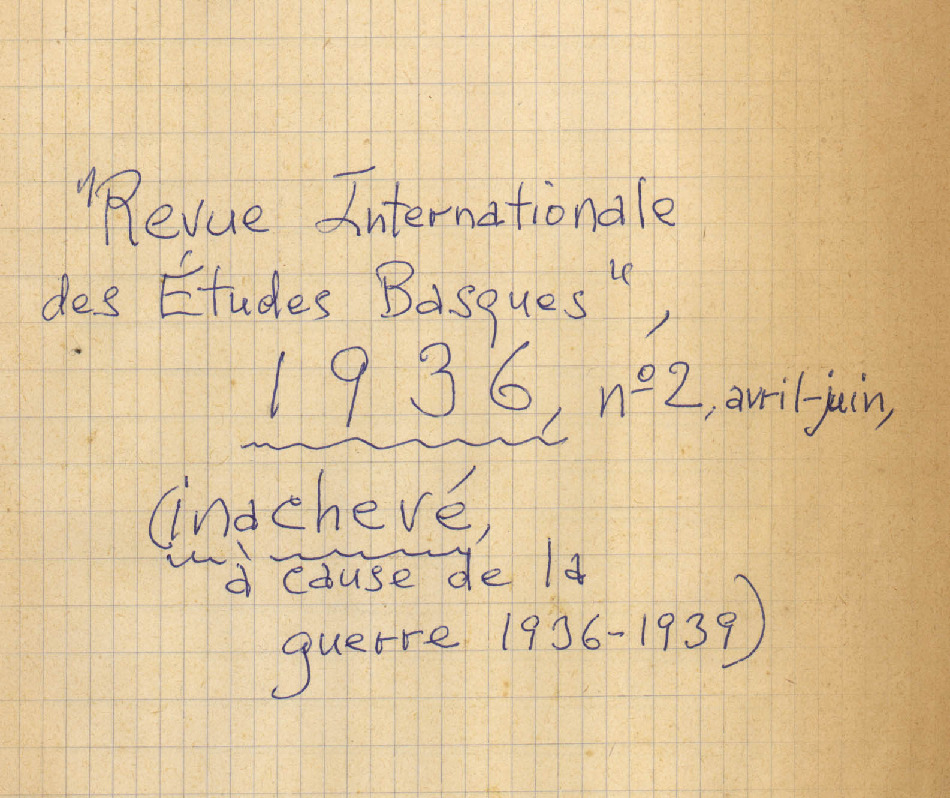 "Revue Internationale
des Études Basques",
1936, nº 2, avril-juin,
(inachevé,
à cause de la
guerre 1936-1939)